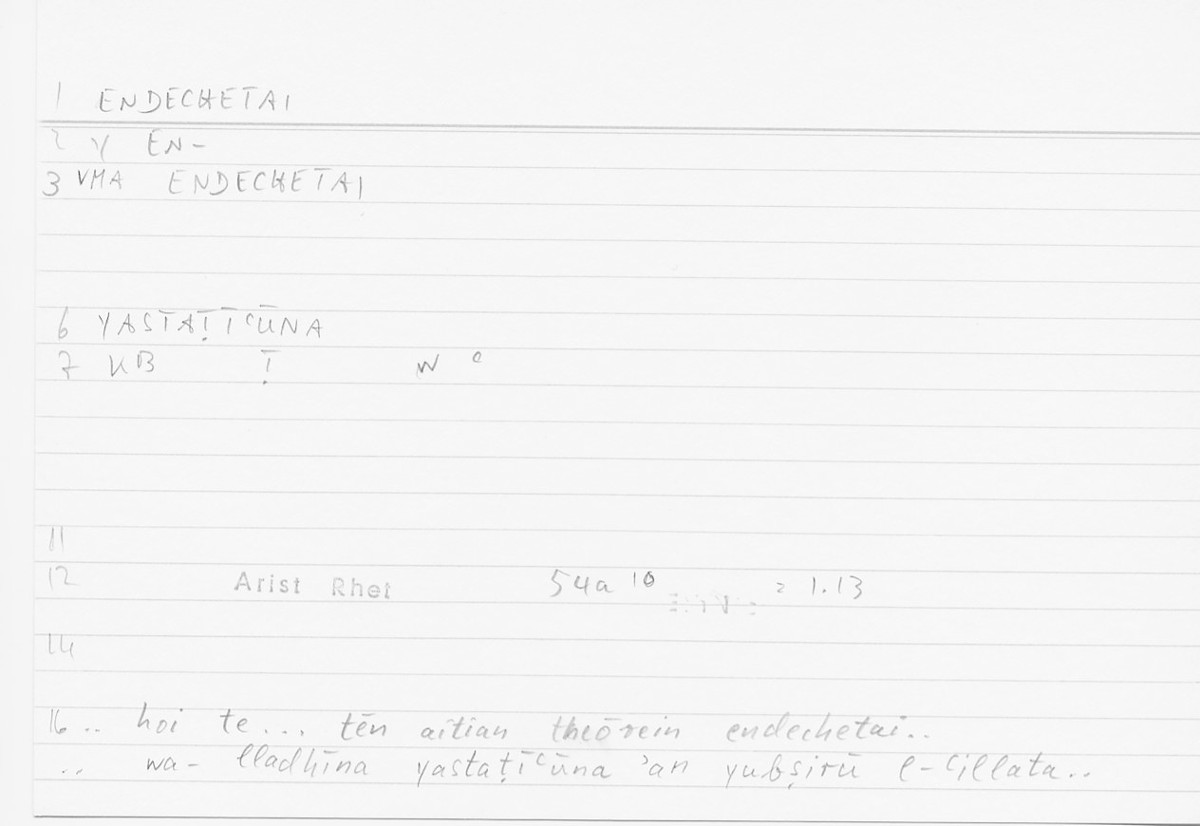 1 ENDECHETAI
2 V EN-
3 VMA ENDECHETAI
6 YASTAṬĪʿŪNA
7 KB Ṭ W ʿ
11
12 Arist Rhet 54a 10 = 1.13
14
16 .. hoi te ... tēn aitian theōrein endechetai ..
.. wa- lladhīna yastaṭīʿūna ʾan yubṣirū l-ʿillata ..